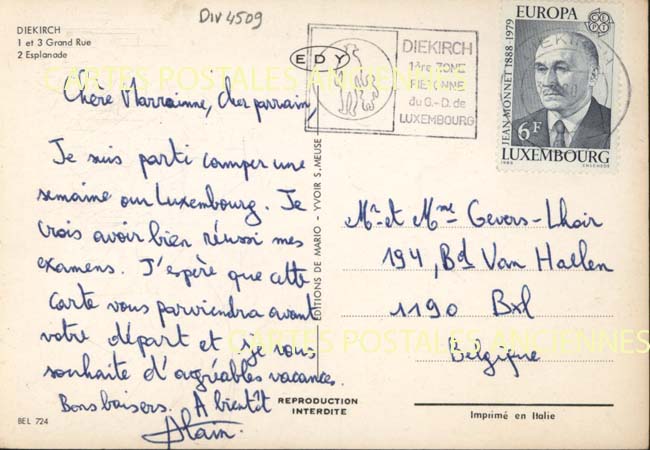 Div 4509
DIEKIRCH
1 et 3 Grand Rue
2 Esplanade
EDY
DIEKIRCH
1ère ZONE
PIÉTONNE
du G.-D. de
LUXEMBOURG
DIEKIRCH
EUROPA
CEPT
JEAN MONNET 1888-1979
6F
LUXEMBOURG
1980
ENSCHEDE
CARTES POSTALES ANCIENNES
Chère Marrainne, Cher parrain,
Je suis parti camper une
semaine our Luxembourg. Je
crois avoir bien réussi mes
examens. J'espère que cette
carte vous parviendra avant
votre départ et je vous
souhaite d'agréables vacances.
Bons baisers. A bientôt
Alain.
EDITIONS DE MARIO - YVOIR S. MEUSE
Mr et Mme Gevers-Lhoir
194, Bd Van Haelen
1190 Bxl
Belgique
CARTES POSTALES ANCIENNES
REPRODUCTION
INTERDITE
Imprimé en Italie
BEL 724